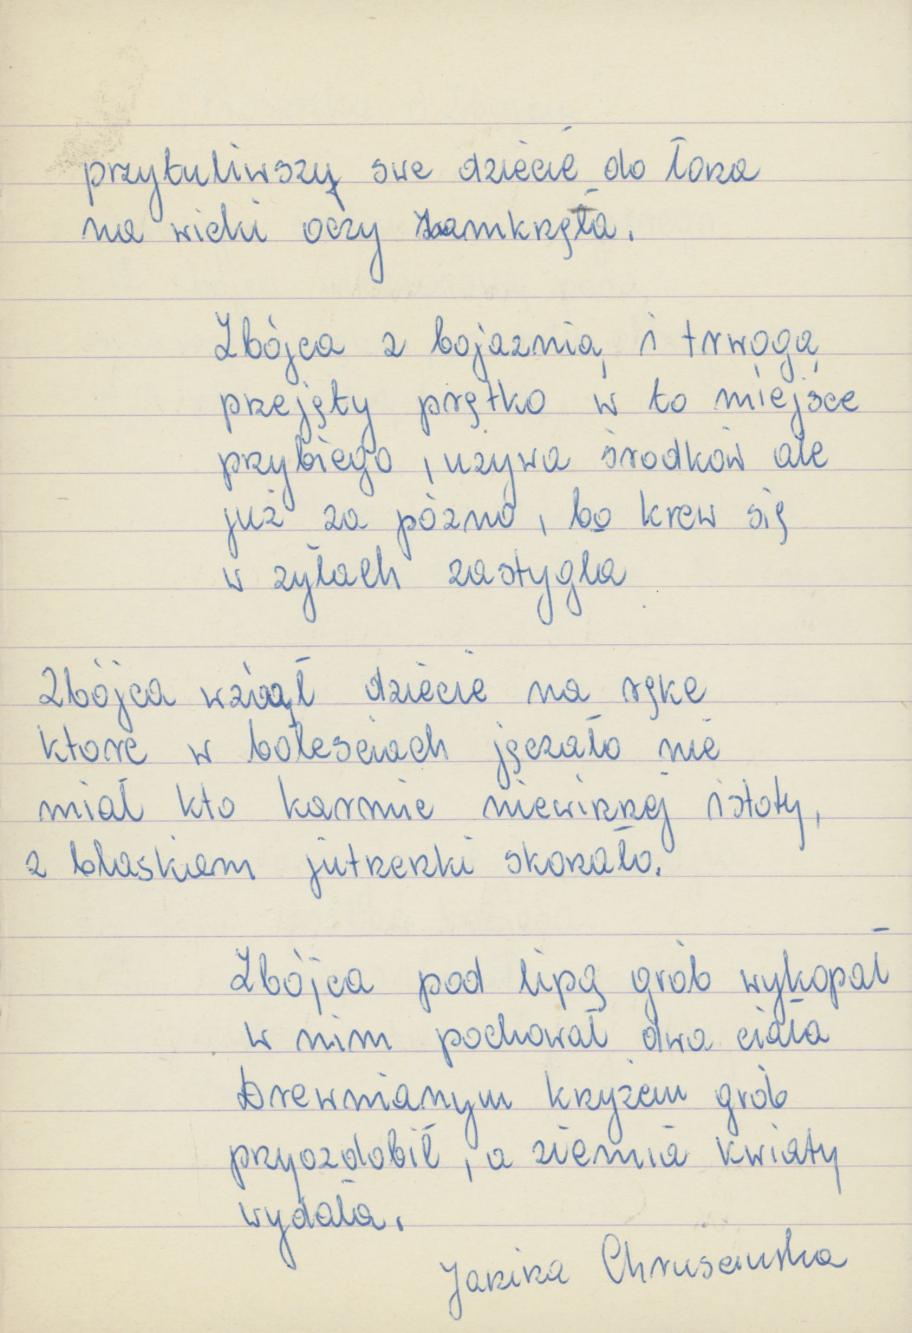 przytuliwszy swe dziecię do łona
na wieki oczy zamknęła.
Zbójca z bojaznią i trwogą
przejęty prętko w to miejsce
przybiego, używa środków ale
już za pózno, bo krew się
w zyłach zastygła
Zbójca wziął dziecie na ręke
ktore w bolesciach jęczało nie
miał kto karmic niewinnej istoty,
z blaskiem jutrzenki skonało.
Zbójca pod lipą grób wykopał
w nim pochował dwa ciała
Drewnianym krzyżem grób
przyozdobił, a ziemia kwiaty
wydała.
Janina